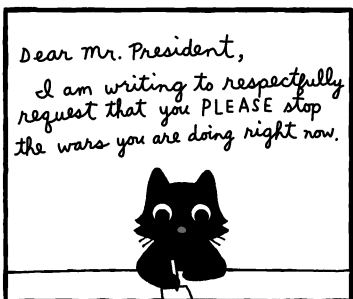 Dear Mr. President,
I am writing to respectfully
request that you PLEASE stop
the wars you are doing right now.